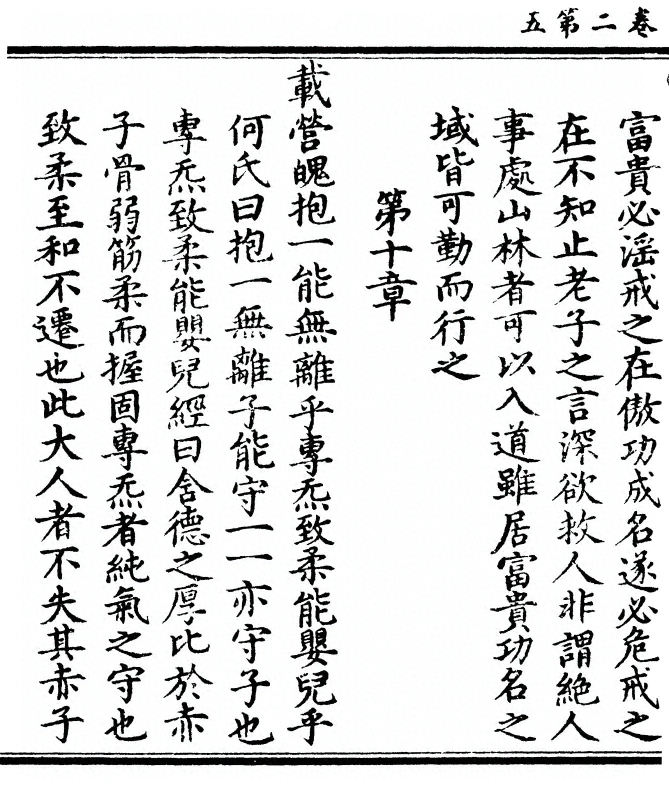 卷二第五
富貴必滛戒之在傲功成名遂必危戒之
在不知止老子之言深欲救人非謂絶人
事處山林者可以入道雖居富貴功名之
域皆可勤而行之
第十章
載營魄抱一能無離乎專炁致柔能嬰兒乎
何氏曰抱一無離子能守一一亦守子也
專炁致柔能嬰兒經曰含德之厚比於赤
子骨弱筋柔而握固專炁者純氣之守也
致柔至和不遷也此大人者不失其赤子